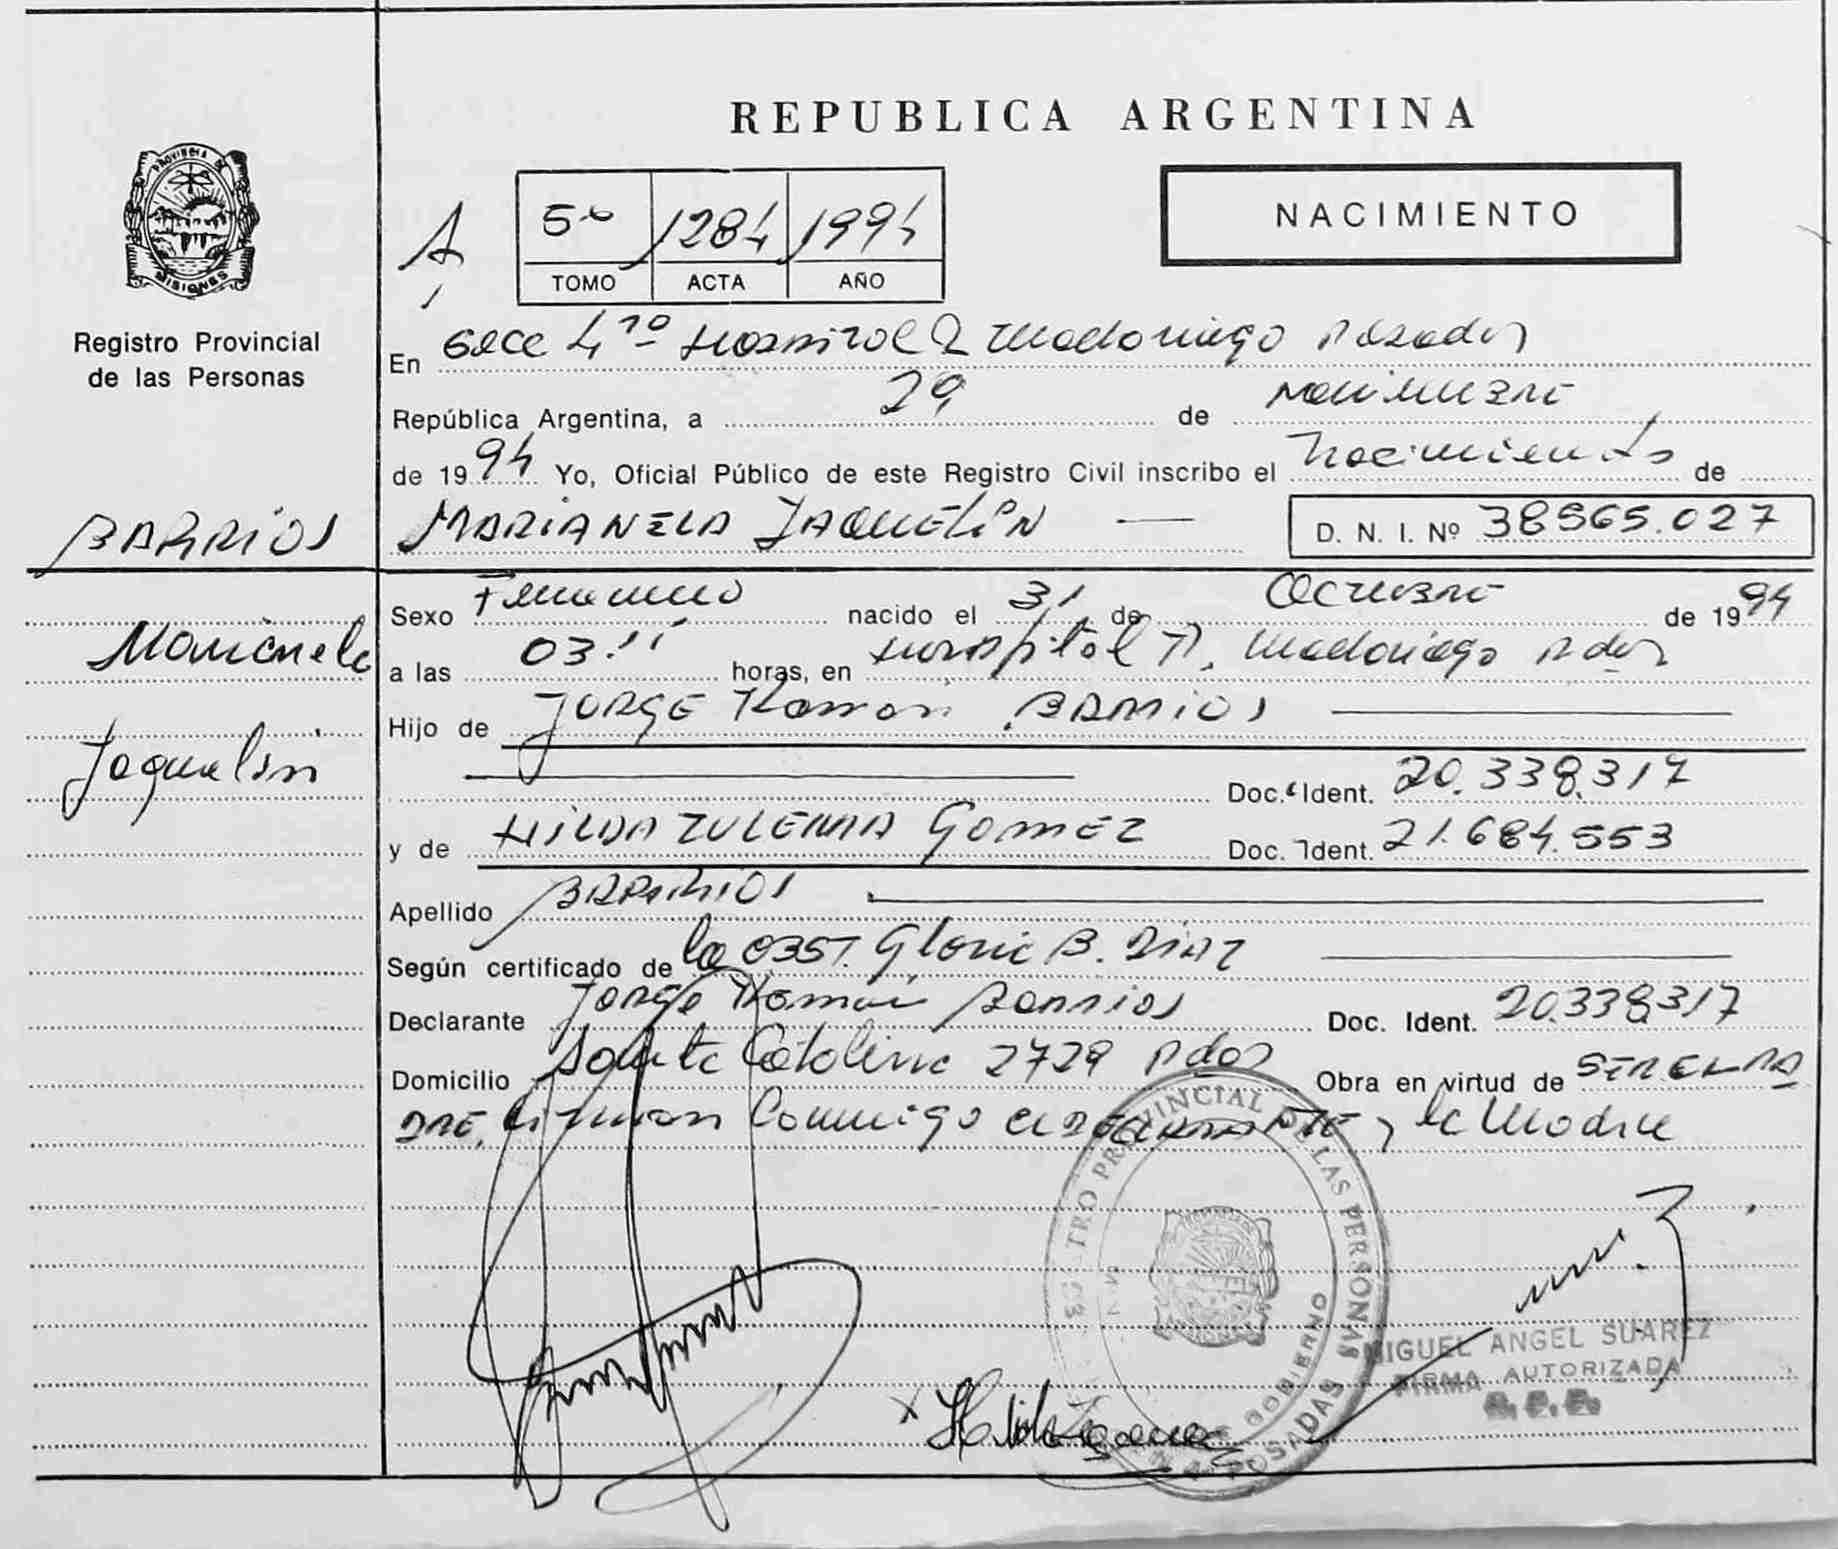 REPUBLICA ARGENTINA
PROVINCIA DE MISIONES
Registro Provincial
de las Personas
A
5º 1284 1994
TOMO ACTA AÑO
NACIMIENTO
En Secc 4ta Hospital R Madariaga Posadas
República Argentina, a 29 de Noviembre
de 1994 Yo, Oficial Público de este Registro Civil inscribo el Nacimiento de
BARRIOS
MARIANELA JAQUELIN — D. N. I. Nº 38565.027
Marianela
Jaquelin
Sexo Femenino nacido el 31 de Octubre de 1994
a las 03.11 horas, en Hospital R. Madariaga Pdas
Hijo de JORGE Ramon BARRIOS
Doc. Ident. 20.338.317
y de HILDA ZULEMA GOMEZ Doc. Ident. 21.684.553
Apellido BARRIOS
Según certificado de la OBST. Gloria B. DIAZ
Declarante Jorge Ramon Barrios Doc. Ident. 20.338.317
Domicilio Santa Catalina 2729 Pdas Obra en virtud de SER EL PA
DRE. Firman Conmigo el DECLARANTE y la Madre
REGISTRO PROVINCIAL DE LAS PERSONAS
GOBIERNO
POSADAS
MIGUEL ANGEL SUAREZ
FIRMA AUTORIZADA
Hilda Z Gomez